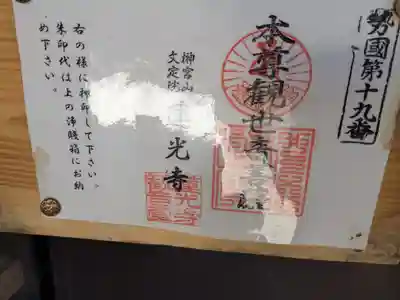 勢國第十九番
本尊観世音菩薩
榊宮山
光寺
右の様に押印して下さい。
朱印代は上の浄賎箱にお納
め下さい。